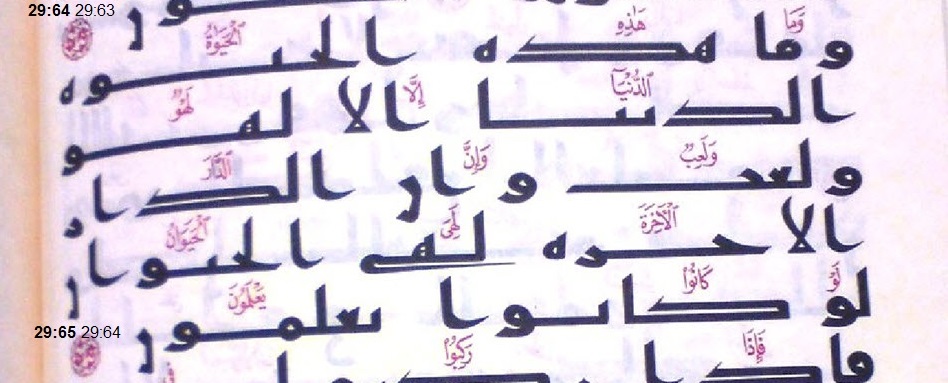 29:64 29:63
وَمَا هَٰذِهِ الْحَيَوٰةُ
وما هده الحىوه
الدُّنْيَآ إِلَّا لَهْوٌ
الدىىا الا لهو
وَلَعِبٌ وَإِنَّ الدَّارَ
ولعب وار الدار
الْءَاخِرَةَ لَهِىَ الْحَيَوَانُ
الاحره لهى الحىوار
لَوْ كَانُوا۟ يَعْلَمُونَ
لو كانوا ىعلمور
29:65 29:64
فَإِذَا رَكِبُوا۟ فِى